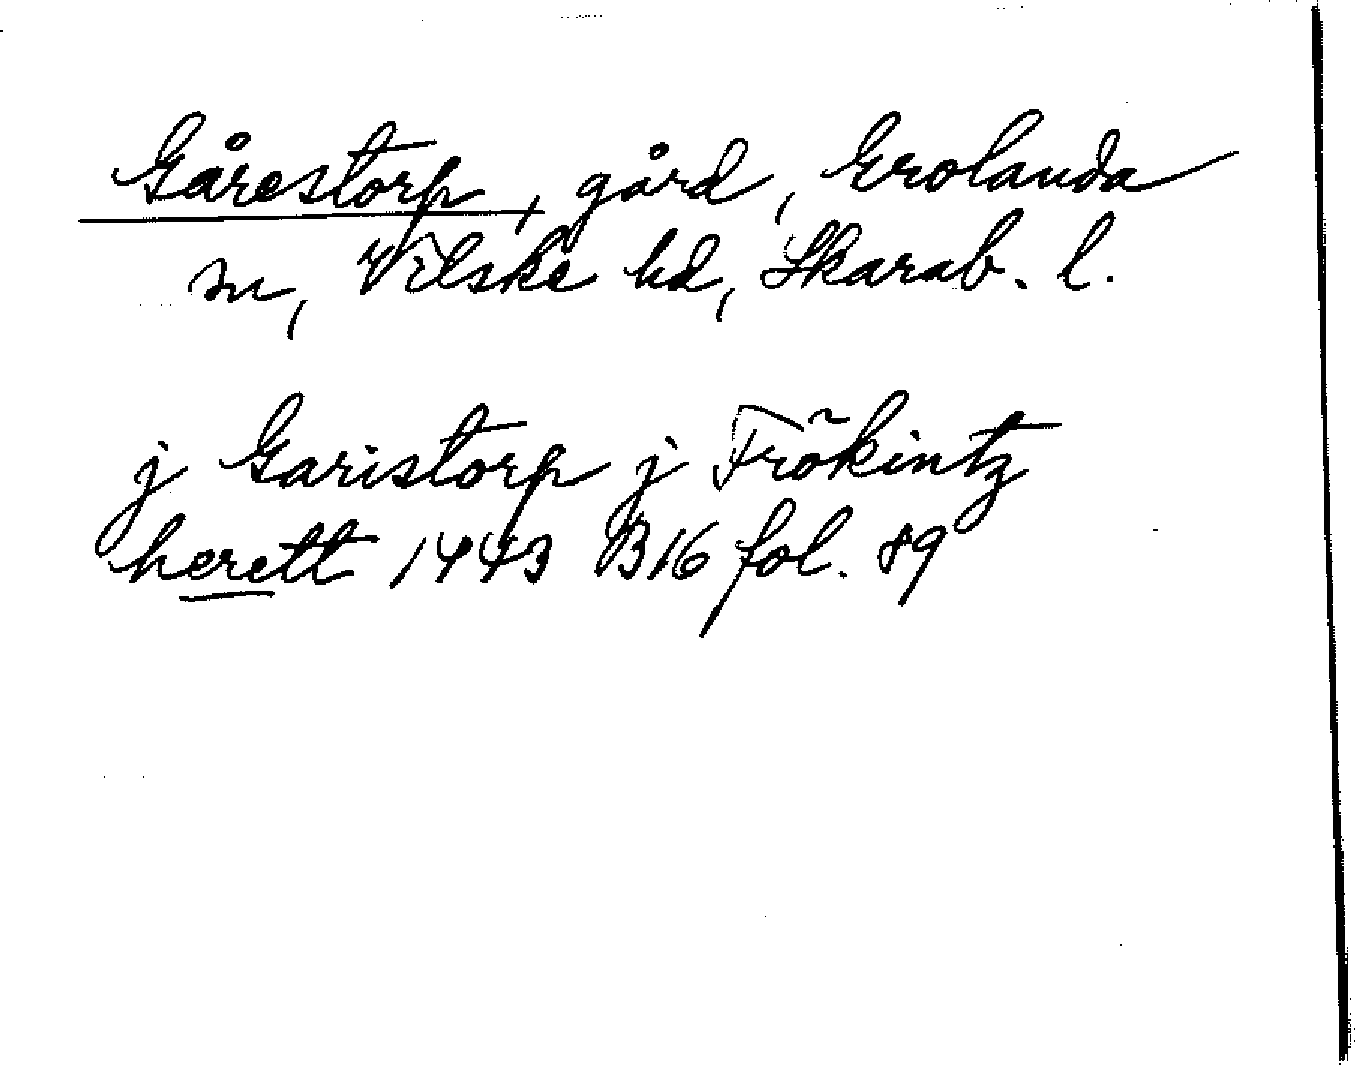 Gårestorp, gård, Erolanda
sn, Vilske hd, Skarab. l.
j Garistorp j Frökintz
herett 1443 B16 fol. 89